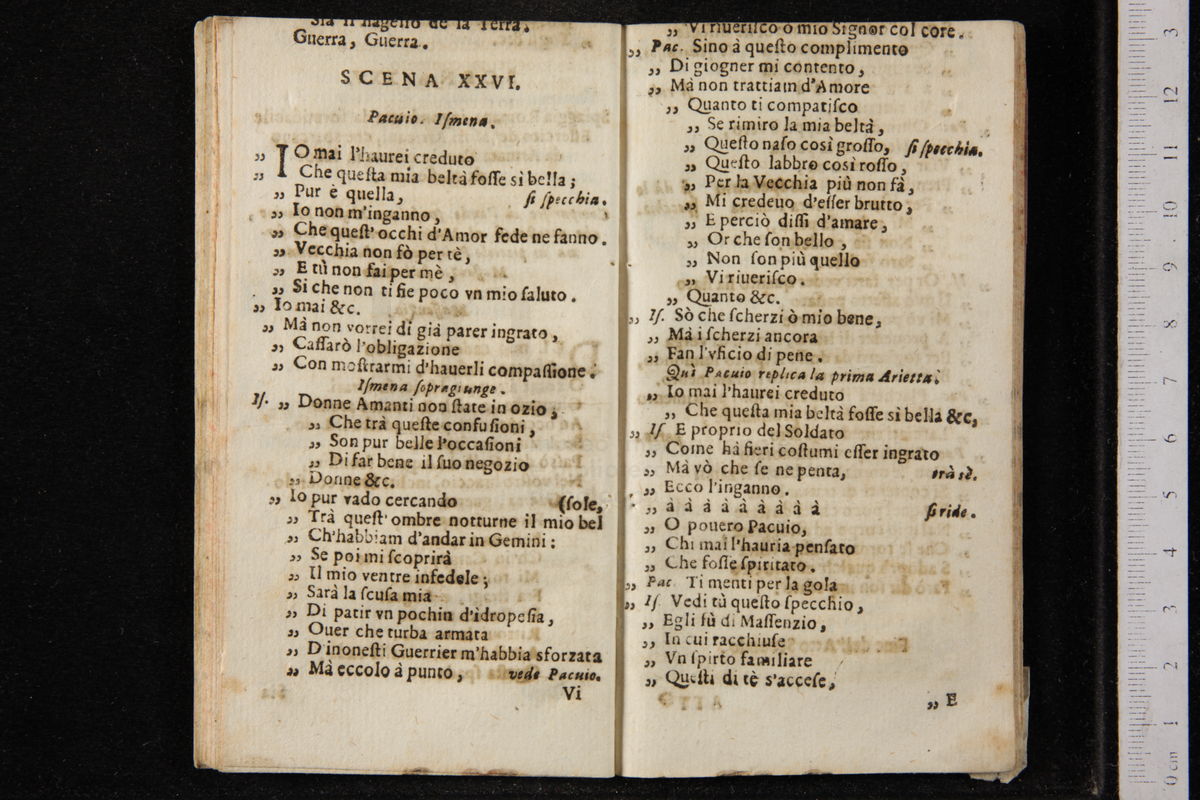 Sia il flagello de la Terra.
Guerra, Guerra.
SCENA XXVI.
Pacuio. Iſmena.
„ IO mai l'haurei creduto
„ Che queſta mia beltà foſſe sì bella;
„ Pur è quella, ſi ſpecchia.
„ Io non m'inganno,
„ Che queſt' occhi d'Amor fede ne fanno.
„ Vecchia non fò per tè,
„ E tù non fai per mè,
„ Si che non ti fie poco vn mio ſaluto.
„ Io mai &c.
„ Mà non vorrei di già parer ingrato,
„ Caſſarò l'obligazione
„ Con moſtrarmi d'hauerli compaſſione.
Iſmena ſopragiunge.
Iſ. „ Donne Amanti non ſtate in ozio,
„ Che trà queſte confuſioni,
„ Son pur belle l'occaſioni
„ Di far bene il ſuo negozio
„ Donne &c.
„ Io pur vado cercando (ſole,
„ Trà queſt' ombre notturne il mio bel
„ Ch'habbiam d'andar in Gemini:
„ Se poi mi ſcoprirà
„ Il mio ventre infedele;
„ Sarà la ſcuſa mia
„ Di patir vn pochin d'idropeſia,
„ Ouer che turba armata
„ D'inoneſti Guerrier m'habbia sforzata
„ Mà eccolo à punto, vede Pacuio.
Vi
„ Vi riueriſco ò mio Signor col core.
„ Pac. Sino à queſto complimento
„ Di giogner mi contento,
„ Mà non trattiam d'Amore
„ Quanto ti compatiſco
„ Se rimiro la mia beltà,
„ Queſto naſo così groſſo, ſi ſpecchia.
„ Queſto labbro così roſſo,
„ Per la Vecchia più non fà,
„ Mi credeuo d'eſſer brutto,
„ E perciò diſſi d'amare,
„ Or che ſon bello,
„ Non ſon più quello
„ Vi riueriſco.
„ Quanto &c.
„ Iſ. Sò che ſcherzi ò mio bene,
„ Mà i ſcherzi ancora
„ Fan l'vficio di pene.
Quì Pacuio replica la prima Arietta.
„ Io mai l'haurei creduto
„ Che queſta mia beltà foſſe sì bella &c,
„ Iſ E proprio del Soldato
„ Come hà fieri coſtumi eſſer ingrato
„ Mà vò che ſe ne penta, trà sè.
„ Ecco l'inganno.
„ à à à à à à à à à ſi ride.
„ O pouero Pacuio,
„ Chi mai l'hauria penſato
„ Che foſſe ſpiritato.
„ Pac. Ti menti per la gola
„ Iſ. Vedi tù queſto ſpecchio,
„ Egli fù di Maſſenzio,
„ In cui racchiuſe
„ Vn ſpirto familiare
„ Queſti di tè s'acceſe,
„ E